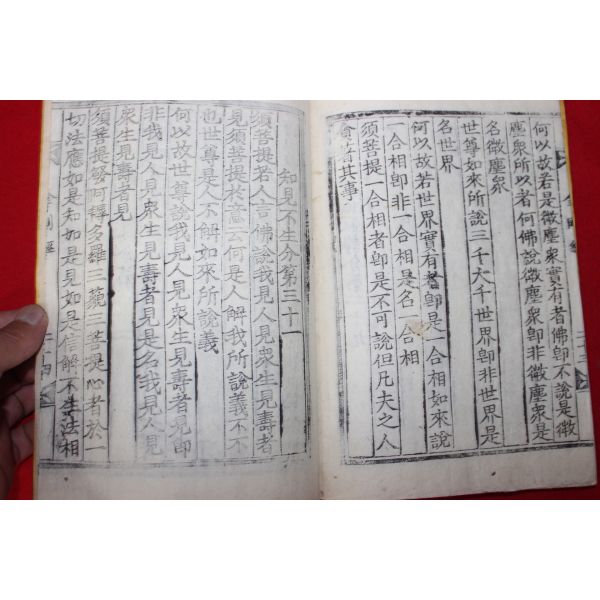 何以故若是微塵衆實有者佛卽不說是微
塵衆所以者何佛說微塵衆卽非微塵衆是
名微塵衆
世尊如來所說三千大千世界卽非世界是
名世界
何以故若世界實有者卽是一合相如來說
一合相卽非一合相是名一合相
須菩提一合相者卽是不可說但凡夫之人
貪著其事
知見不生分第三十一
須菩提若人言佛說我見人見衆生見壽者
見須菩提於意云何是人解我所說義不不
也世尊是人不解如來所說義
何以故世尊說我見人見衆生見壽者見卽
非我見人見衆生見壽者見是名我見人見
衆生見壽者見
須菩提發阿耨多羅三藐三菩提心者於一
切法應如是知如是見如是信解不生法相
金剛經